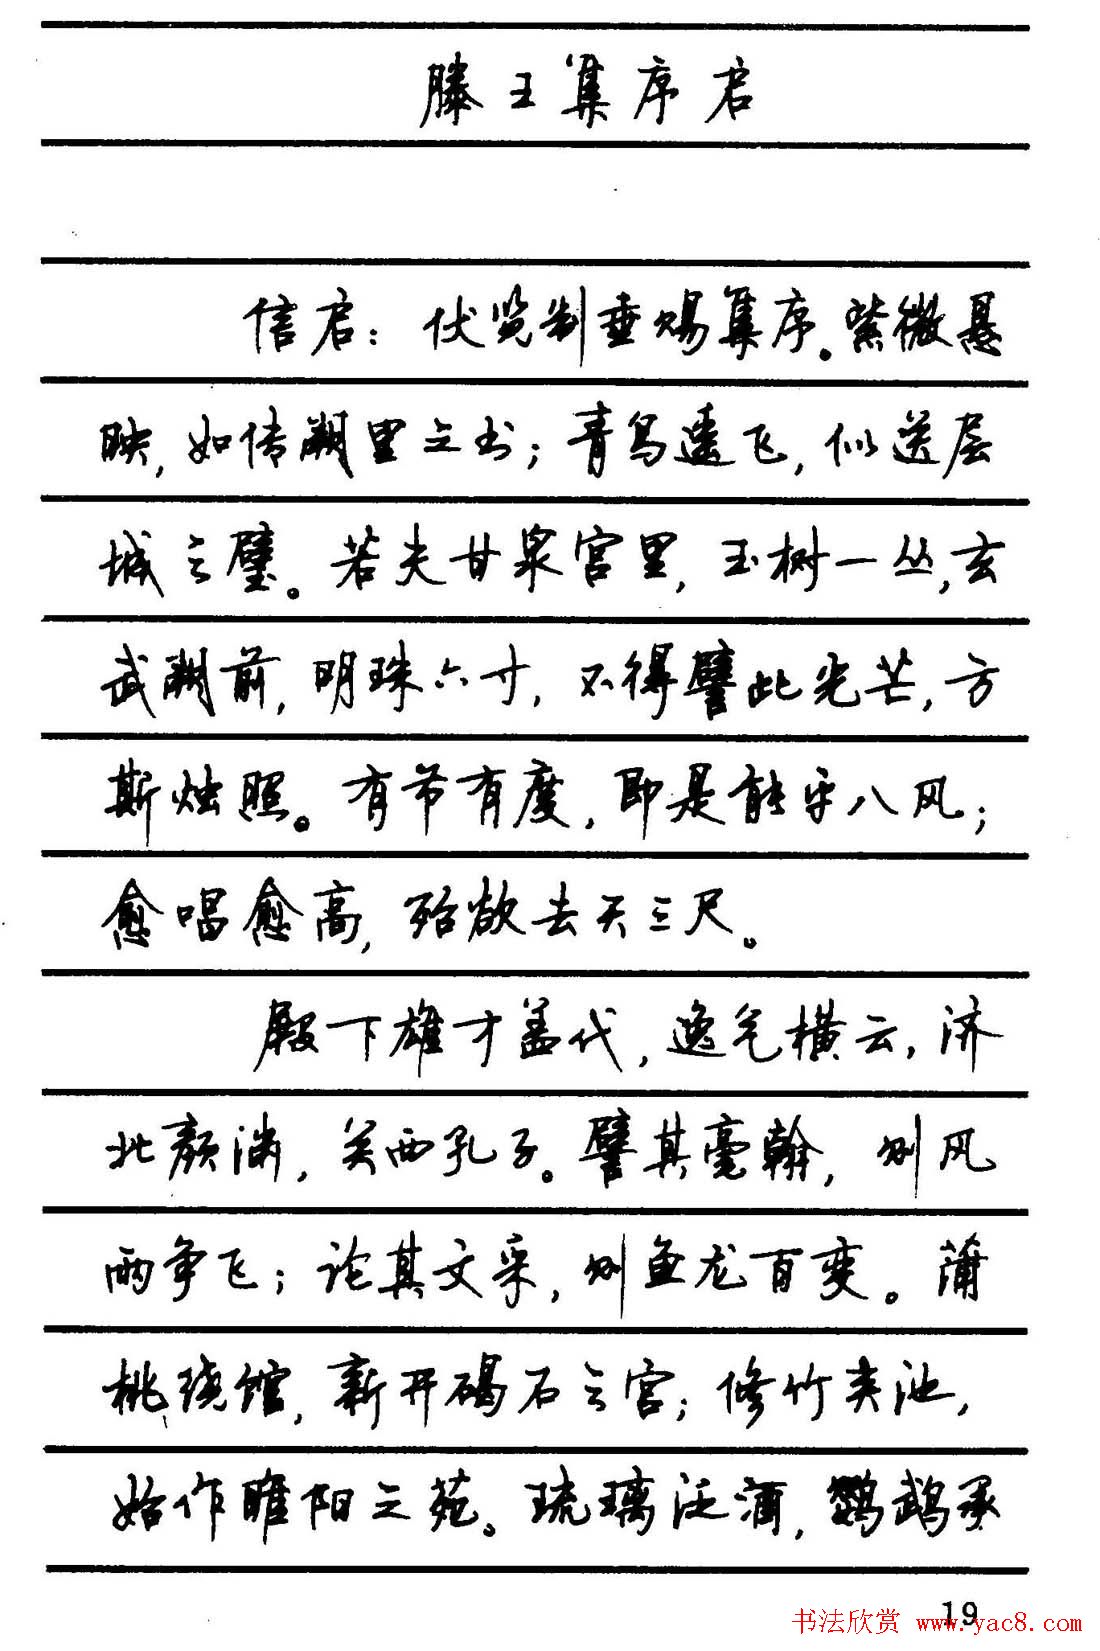 滕王集序启
信启：伏览制垂赐集序。紫微悬
映，如传阙里之书；青鸟遥飞，似送层
城之璧。若夫甘泉宫里，玉树一丛，玄
武阙前，明珠六寸，不得譬此光芒，方
斯烛照。有节有度，即是能平八风；
愈唱愈高，殆欲去天三尺。
殿下雄才盖代，逸气横云，济
北颜渊，关西孔子。譬其毫翰，则风
雨争飞；论其文采，则鱼龙百变。蒲
桃绕馆，新开碣石之宫；修竹夹池，
始作睢阳之苑。琉璃泛酒，鹦鹉承
19
书法欣赏 www.yac8.com